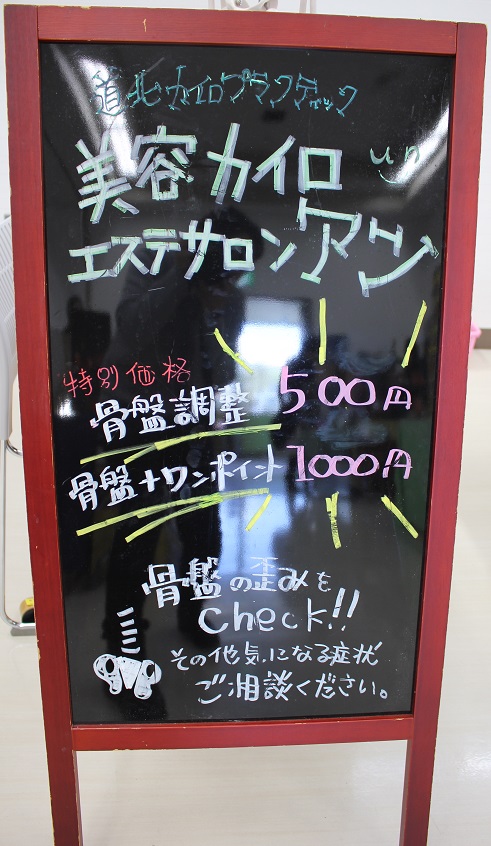 道北カイロプラクティック
美容カイロ un
エステサロンアン
特別価格
骨盤調整 500円
骨盤+ワンポイント 1000円
骨盤の歪みを
check!!
その他気になる症状
ご相談ください。